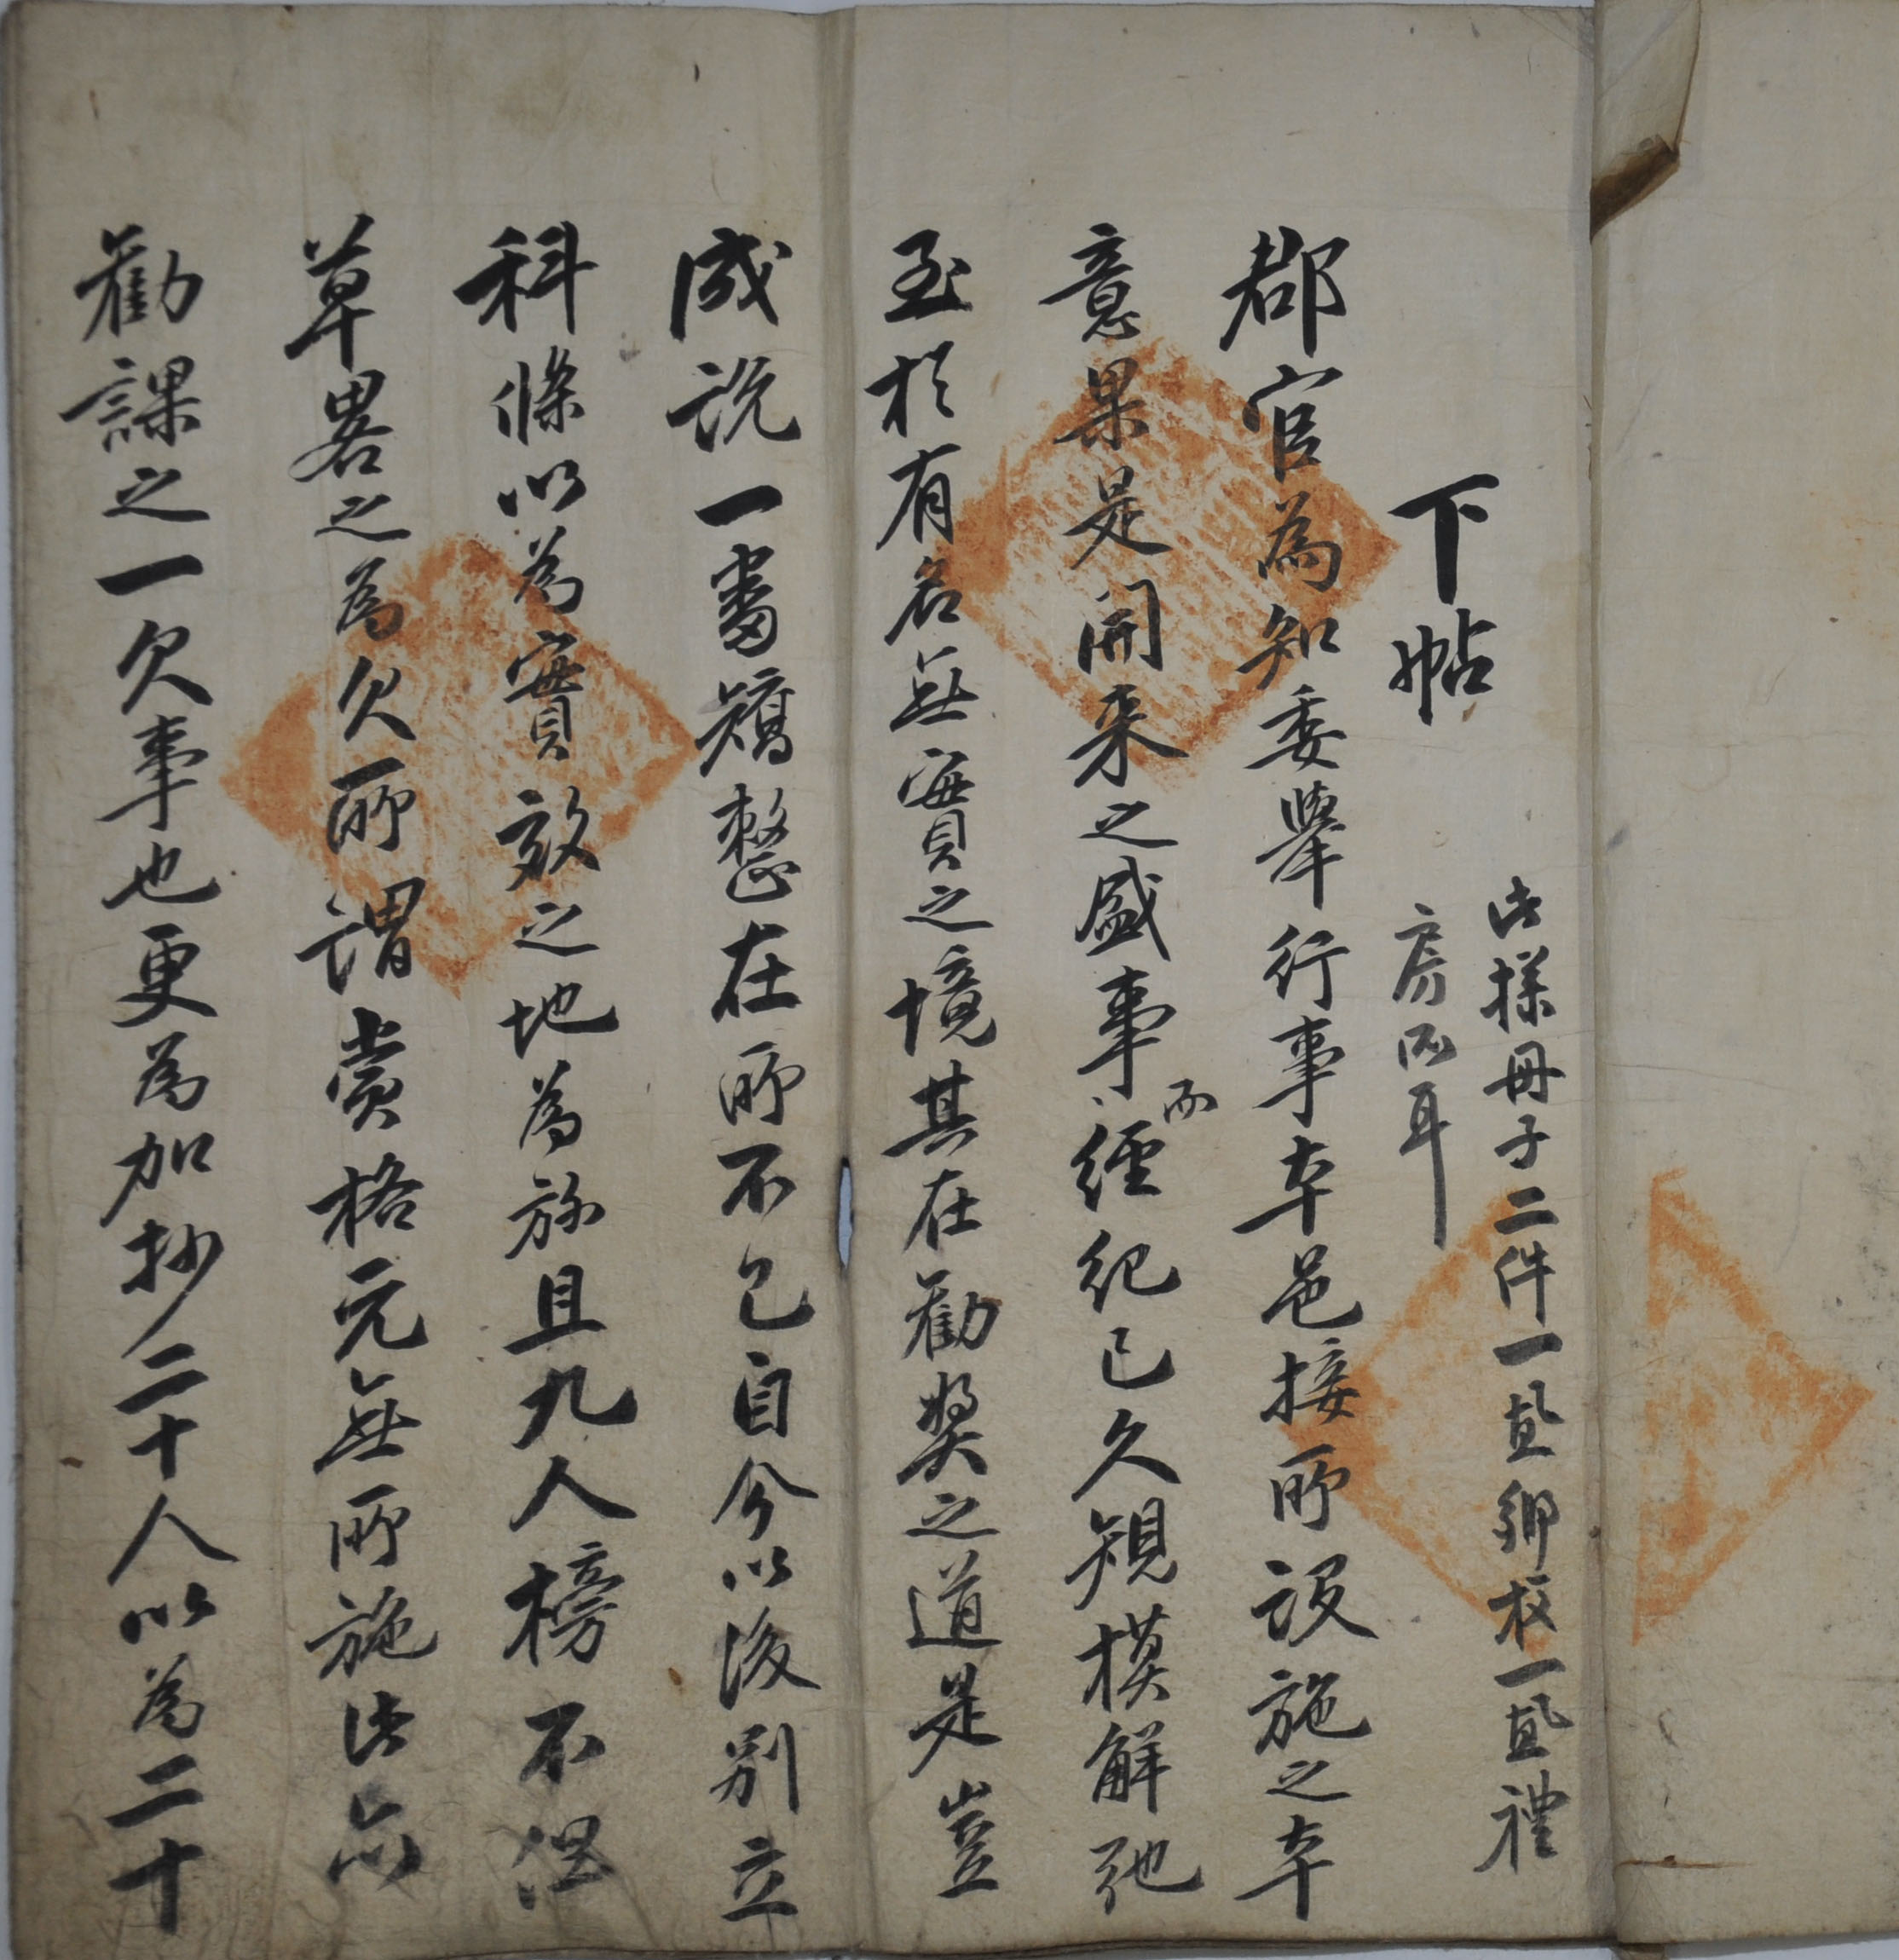 下帖
此樣冊子二件一置鄉校一置禮
房爲耳
郡官為知委擧行事本邑接所設施之本
意果是開來之盛事而經紀已久規模解弛
至於有名無實之境其在勸奬之道是豈
成說一番矯整在所不已自今以後別立
科條以為實效之地為旀且九人榜不但
草畧之為欠所謂賞格元無所施此亦
勸課之一欠事也更為加抄二十人以為二十